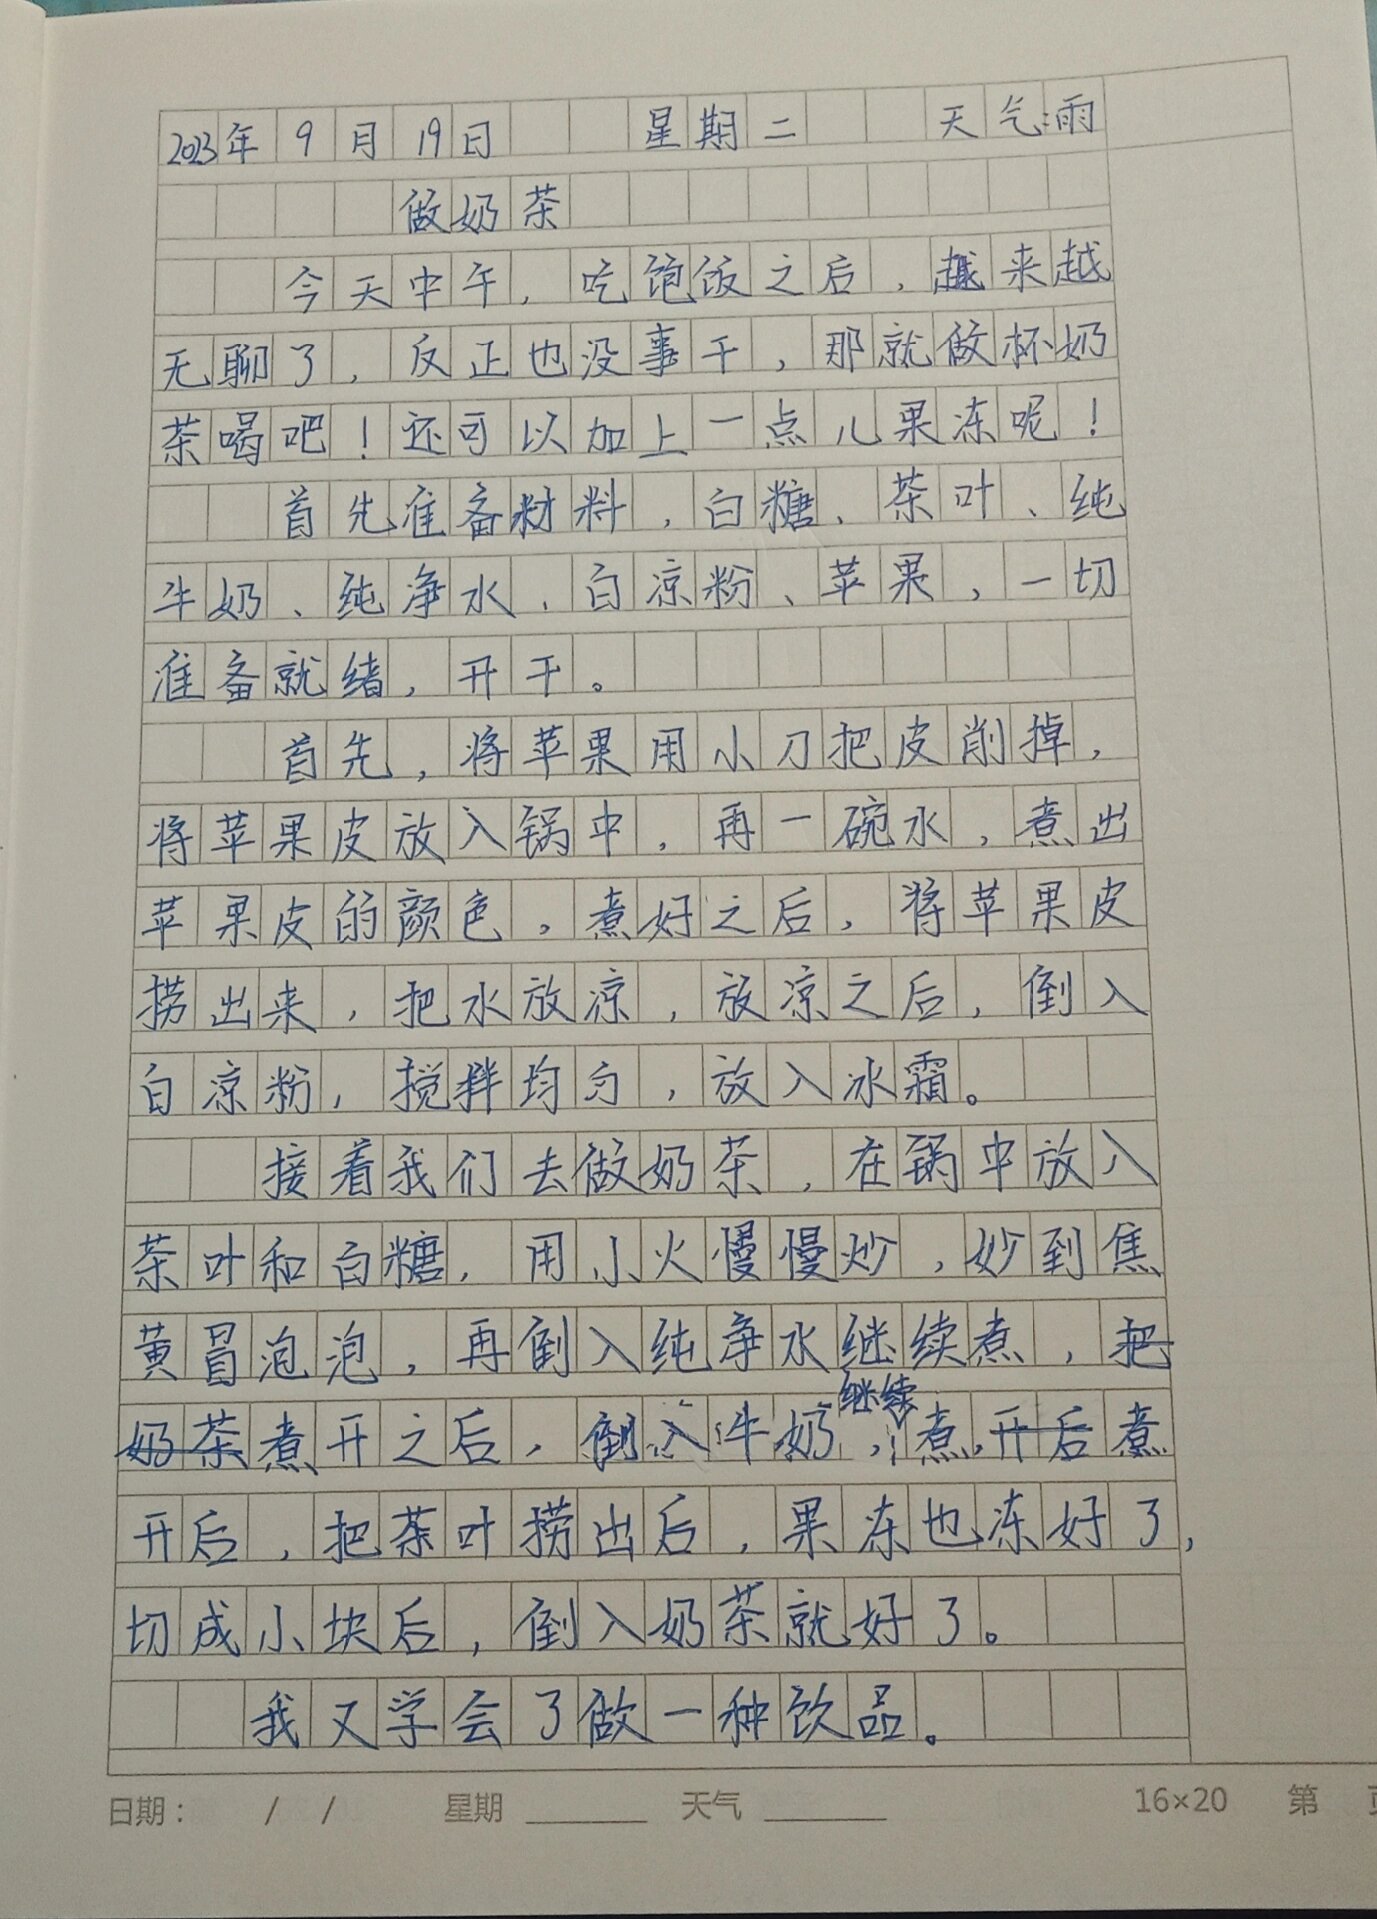 2023年9月19日 星期二 天气:雨
做奶茶
今天中午，吃饱饭之后，越来越
无聊了，反正也没事干，那就做杯奶
茶喝吧！还可以加上一点儿果冻呢！
首先准备材料，白糖、茶叶、纯
牛奶、纯净水、白凉粉、苹果，一切
准备就绪，开干。
首先，将苹果用小刀把皮削掉，
将苹果皮放入锅中，再一碗水，煮出
苹果皮的颜色，煮好之后，将苹果皮
捞出来，把水放凉，放凉之后，倒入
白凉粉，搅拌均匀，放入冰霜。
接着我们去做奶茶，在锅中放入
茶叶和白糖，用小火慢慢炒，妙到焦
黄冒泡泡，再倒入纯净水继续煮，把
奶茶煮开之后，倒入牛奶，继续煮，开后煮
开后，把茶叶捞出后，果冻也冻好了，
切成小块后，倒入奶茶就好了。
我又学会了做一种饮品。
日期： / / 星期 天气 16×20 第